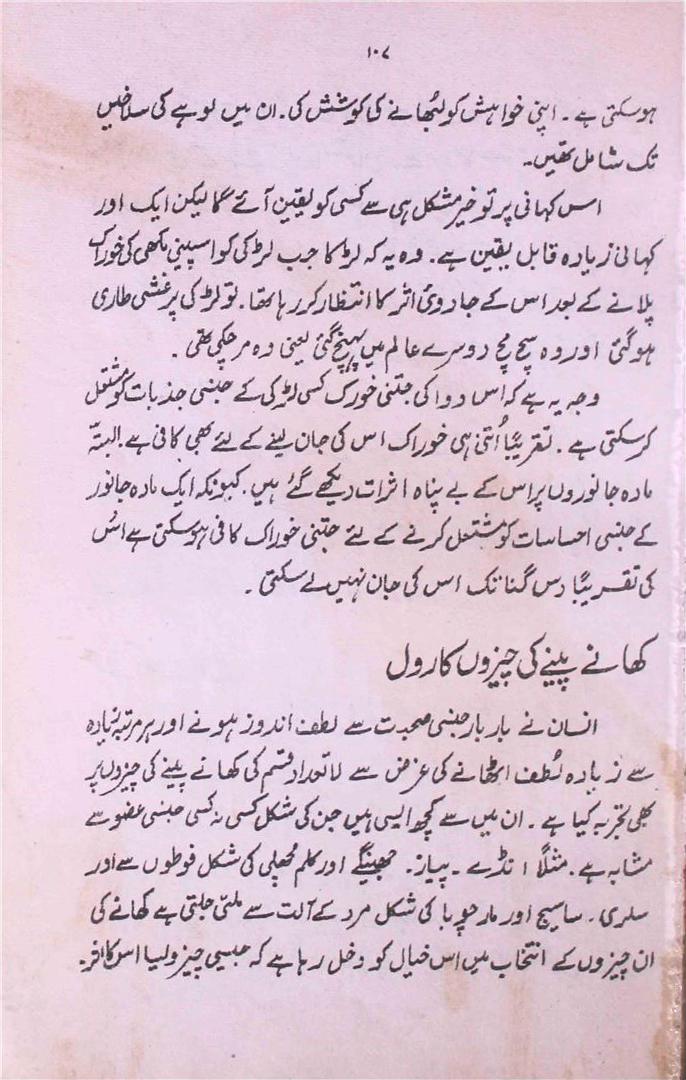 ۱۰۷
ہوسکتی ہے ۔ اپنی خواہش کو لبُھانے کی کوشش کی۔ ان میں لوہے کی سلاخیں
تک شامل تھیں۔
اس کہانی پر تو خیر مشکل ہی سے کسی کو یقین آئے گا لیکن ایک اور
کہانی زیادہ قابل یقین ہے۔ وہ یہ کہ لڑکا جب لڑکی کو اسپینی مکھی کی خوراک
پلانے کے بعد اس کے جادوئی اثر کا انتظار کر رہا تھا۔ تو لڑکی پر غشی طاری
ہوگئی اور وہ سچ مچ دوسرے عالم میں پہنچ گئی یعنی وہ مرچکی تھی ۔
وجہ یہ ہے کہ اس دوا کی جتنی خورک کسی لڑکی کے جنسی جذبات کو مشتعل
کرسکتی ہے ۔ تقریبًا اُتنی ہی خوراک اس کی جان لینے کے لئے بھی کافی ہے البتّہ
مادہ جانوروں پر اس کے بے پناہ اثرات دیکھے گئے ہیں۔ کیونکہ ایک مادہ جانور
کے جنسی احساسات کو مشتعل کرنے کے لئے جتنی خوراک کافی ہوسکتی ہے اُس
کی تقریبًا دس گنا تک اس کی جان نہیں لے سکتی ۔
کھانے پینے کی چیزوں کا رول
انسان نے بار بار جنسی صحبت سے لطف اندوز ہونے اور ہر مرتبہ زیادہ
سے زیادہ لُطف اٹھانے کی غرض سے لاتعداد قسم کی کھانے پینے کی چیزوں پر
بھی تجربہ کیا ہے ۔ ان میں سے کچھ ایسی ہیں جن کی شکل کسی نہ کسی جنسی عضو سے
مشابہ ہے۔ مثلًا انڈے ۔ پیاز۔ جھینگے اور کلم مچھلی کی شکل فوطوں سے اور
سلری ۔ ساسیج اور مارچوبا کی شکل مرد کے آلت سے ملتی جلتی ہے کھانے کی
ان چیزوں کے انتخاب میں اس خیال کو دخل رہا ہے کہ جیسی چیز ولیا اس کا اثر۔